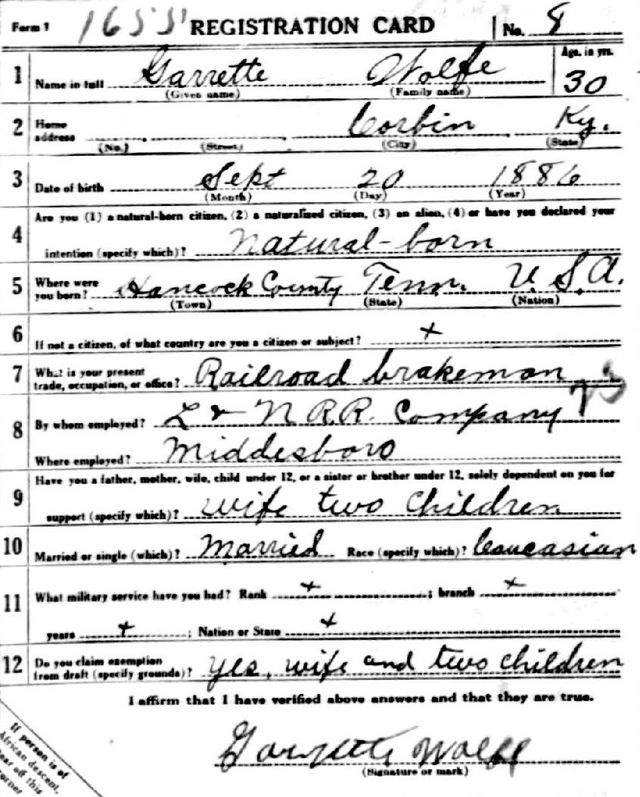 Form 1 1655 REGISTRATION CARD No. 8
1 Name in full Garrette Wolfe Age, in yrs. 30
(Given name) (Family name)
2 Home address Corbin Ky.
(No.) (Street) (City) (State)
3 Date of birth Sept 20 1886
(Month) (Day) (Year)
Are you (1) a natural-born citizen, (2) a naturalized citizen, (3) an alien, (4) or have you declared your
4 intention (specify which)? Natural-born
5 Where were you born? Hancock County Tenn. U.S.A.
(Town) (State) (Nation)
6 If not a citizen, of what country are you a citizen or subject? +
7 What is your present trade, occupation, or office? Railroad brakeman
8 By whom employed? L & N R.R. Company
Where employed? Middesboro
Have you a father, mother, wife, child under 12, or a sister or brother under 12, solely dependent on you for
9 support (specify which)? wife two children
10 Married or single (which)? Married Race (specify which)? Caucasian
11 What military service have you had? Rank + ; branch +
years + ; Nation or State +
12 Do you claim exemption from draft (specify grounds)? yes, wife and two children
I affirm that I have verified above answers and that they are true.
Garrette Wolfe
(Signature or mark)
If person is of
African descent,
tear off this
corner